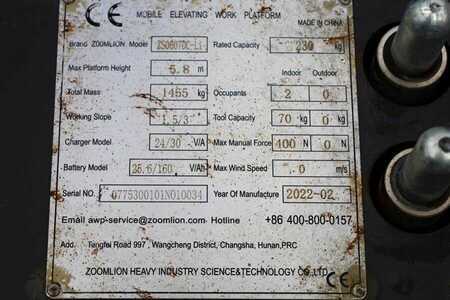 CE MOBILE ELEVATING WORK PLATFORM
MADE IN CHINA
Brand ZOOMLION Model ZS0607DC-Li Rated Capacity 230 kg
Max Platform Height 5.8 m Indoor Outdoor
Total Mass 1455 kg Occupants 2 0
Working Slope 1.5/3 ° Tool Capacity 70 kg 0
Charger Model 24/30 V/A Max Manual Force 400 N 0 N
Battery Model 25.6/160 V/Ah Max Wind Speed 0 m/s
Serial NO. 0775300101N010034 Year Of Manufacture 2022-02
Email awp-service@zoomlion.com Hotline +86 400-800-0157
Add. Tengfei Road 997, Wangcheng District, Changsha, Hunan,PRC
ZOOMLION HEAVY INDUSTRY SCIENCE&TECHNOLOGY CO.,LTD. CE